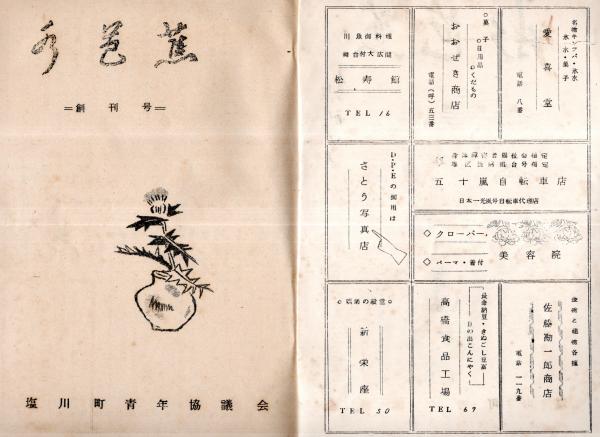 水芭蕉
=創刊号=
塩川町青年協議会
名物キツパ・氷水
氷・水・菓子
愛喜堂
電話 八番
○菓子
○日用品
○くだもの
おおぜき商店
電話(呼)五三番
川魚御料理
舞台付大広間
松寿館
TEL 16
五十嵐自転車店
日本一光風号自転車代理店
D・P・Eの御用は
さとう写真店
◇クローバー
◇パーマ・着付
美容院
佐藤勘一郎商店
電話 一一九番
最楽納豆・きぬごし豆腐
日の出こんにやく
高橋食品工場
TEL 69
○娯楽の殿堂○
新栄座
TEL 50